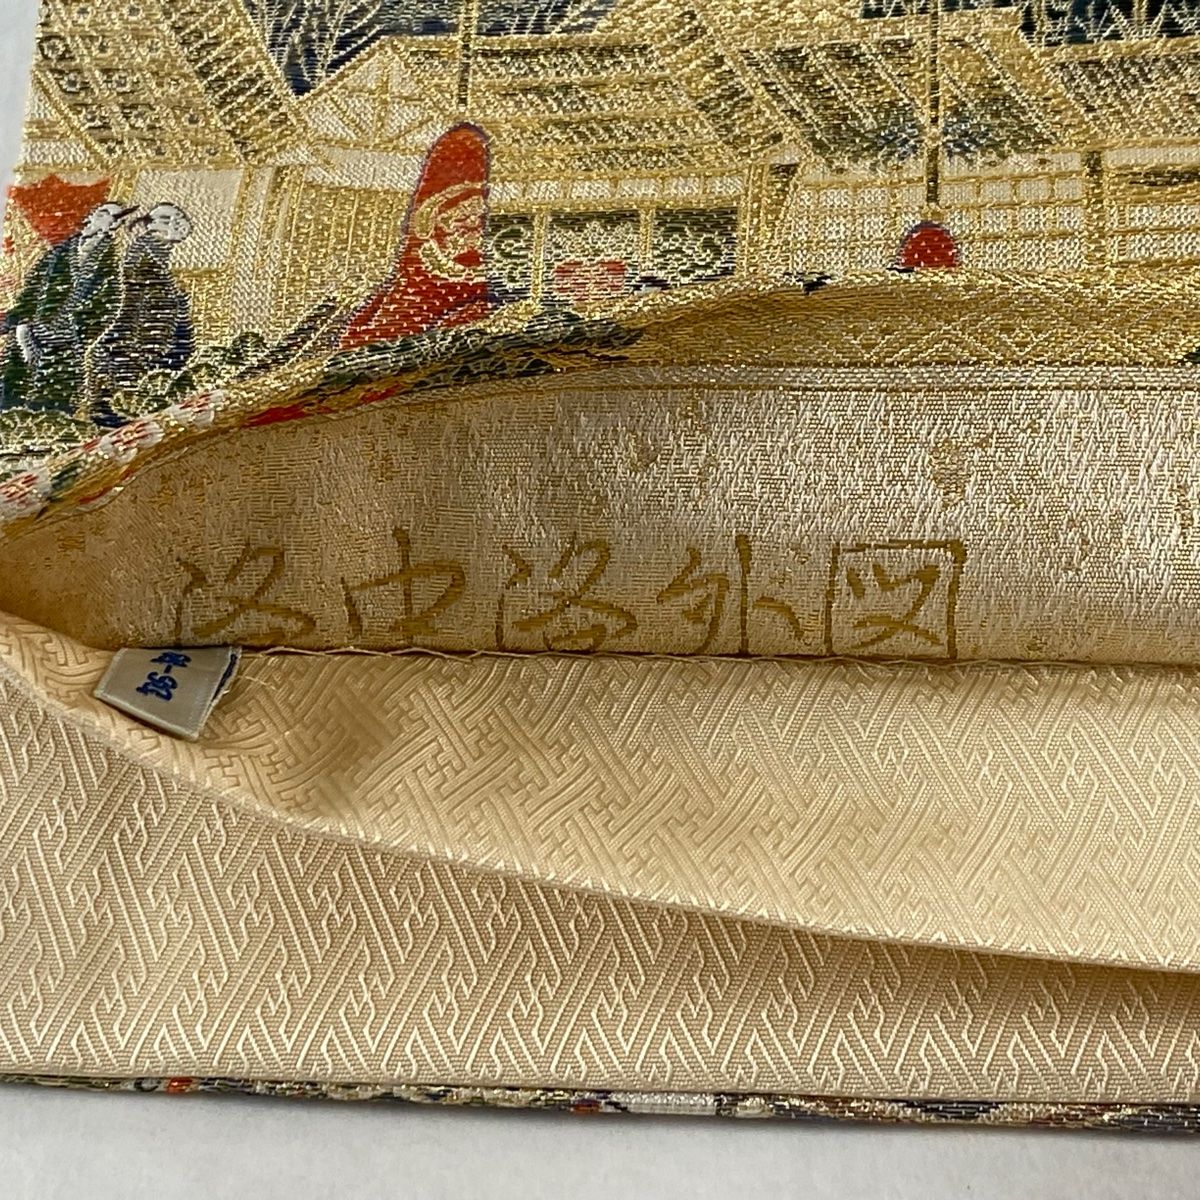 洛中洛外図